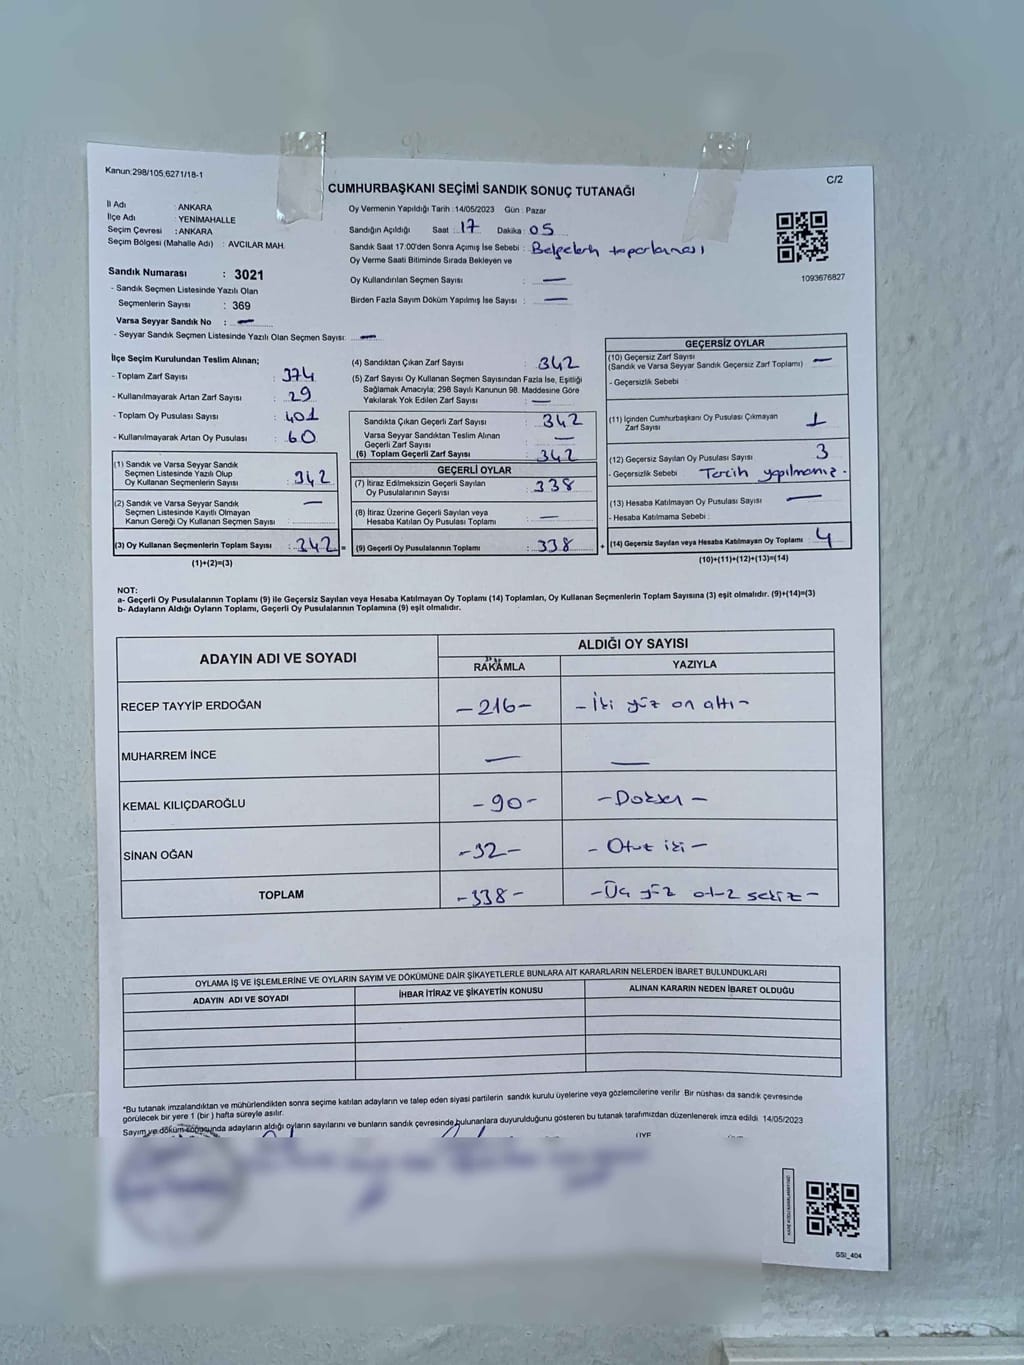 Kanun:298/105,6271/18-1
C/2
CUMHURBAŞKANI SEÇİMİ SANDIK SONUÇ TUTANAĞI
İl Adı : ANKARA
İlçe Adı : YENİMAHALLE
Seçim Çevresi : ANKARA
Seçim Bölgesi (Mahalle Adı) : AVCILAR MAH.
Sandık Numarası : 3021
- Sandık Seçmen Listesinde Yazılı Olan
Seçmenlerin Sayısı : 369
Varsa Seyyar Sandık No : —
- Seyyar Sandık Seçmen Listesinde Yazılı Olan Seçmen Sayısı: —
Oy Vermenin Yapıldığı Tarih : 14/05/2023 Gün : Pazar
Sandığın Açıldığı Saat : 17 Dakika : 05
Sandık Saat 17:00'den Sonra Açımış İse Sebebi : Belgelerin toparlanması
Oy Verme Saati Bitiminde Sırada Bekleyen ve
Oy Kullandırılan Seçmen Sayısı : —
Birden Fazla Sayım Döküm Yapılmış İse Sayısı : —
1093676827
İlçe Seçim Kurulundan Teslim Alınan;
- Toplam Zarf Sayısı : 374
- Kullanılmayarak Artan Zarf Sayısı : 29
- Toplam Oy Pusulası Sayısı : 401
- Kullanılmayarak Artan Oy Pusulası : 60
(1) Sandık ve Varsa Seyyar Sandık
Seçmen Listesinde Yazılı Olup
Oy Kullanan Seçmenlerin Sayısı : 342
(2) Sandık ve Varsa Seyyar Sandık
Seçmen Listesinde Kayıtlı Olmayan
Kanun Gereği Oy Kullanan Seçmen Sayısı : —
(3) Oy Kullanan Seçmenlerin Toplam Sayısı : 342 =
(1)+(2)=(3)
(4) Sandıktan Çıkan Zarf Sayısı : 342
(5) Zarf Sayısı Oy Kullanan Seçmen Sayısından Fazla İse, Eşitliği
Sağlamak Amacıyla; 298 Sayılı Kanunun 98. Maddesine Göre
Yakılarak Yok Edilen Zarf Sayısı : —
Sandıkta Çıkan Geçerli Zarf Sayısı : 342
Varsa Seyyar Sandıktan Teslim Alınan
Geçerli Zarf Sayısı : —
(6) Toplam Geçerli Zarf Sayısı : 342
GEÇERLİ OYLAR
(7) İtiraz Edilmeksizin Geçerli Sayılan
Oy Pusulalarının Sayısı : 338
(8) İtiraz Üzerine Geçerli Sayılan veya
Hesaba Katılan Oy Pusulası Toplamı : —
(9) Geçerli Oy Pusulalarının Toplamı : 338 +
GEÇERSİZ OYLAR
(10) Geçersiz Zarf Sayısı
(Sandık ve Varsa Seyyar Sandık Geçersiz Zarf Toplamı) —
- Geçersizlik Sebebi
(11) İçinden Cumhurbaşkanı Oy Pusulası Çıkmayan
Zarf Sayısı 1
(12) Geçersiz Sayılan Oy Pusulası Sayısı 3
- Geçersizlik Sebebi Tercih yapılmamış.
(13) Hesaba Katılmayan Oy Pusulası Sayısı —
- Hesaba Katılmama Sebebi :
(14) Geçersiz Sayılan veya Hesaba Katılmayan Oy Toplamı : 4
(10)+(11)+(12)+(13)=(14)
NOT:
a- Geçerli Oy Pusulalarının Toplamı (9) ile Geçersiz Sayılan veya Hesaba Katılmayan Oy Toplamı (14) Toplamları, Oy Kullanan Seçmenlerin Toplam Sayısına (3) eşit olmalıdır. (9)+(14)=(3)
b- Adayların Aldığı Oyların Toplamı, Geçerli Oy Pusulalarının Toplamına (9) eşit olmalıdır.
ADAYIN ADI VE SOYADI
ALDIĞI OY SAYISI
RAKAMLA YAZIYLA
RECEP TAYYİP ERDOĞAN -216- - İki yüz on altı -
MUHARREM İNCE — —
KEMAL KILIÇDAROĞLU -90- - Doksan -
SİNAN OĞAN -32- - Otuz iki -
TOPLAM -338- - Üç yüz otuz sekiz -
OYLAMA İŞ VE İŞLEMLERİNE VE OYLARIN SAYIM VE DÖKÜMÜNE DAİR ŞİKAYETLERLE BUNLARA AİT KARARLARIN NELERDEN İBARET BULUNDUKLARI
ADAYIN ADI VE SOYADI İHBAR İTİRAZ VE ŞİKAYETİN KONUSU ALINAN KARARIN NEDEN İBARET OLDUĞU
*Bu tutanak imzalandıktan ve mühürlendikten sonra seçime katılan adayların ve talep eden siyasi partilerin sandık kurulu üyelerine veya gözlemcilerine verilir. Bir nüshası da sandık çevresinde
görülecek bir yere 1 (bir) hafta süreyle asılır.
Sayım ve döküm sonucunda adayların aldığı oyların sayılarını ve bunların sandık çevresinde bulunanlara duyurulduğunu gösteren bu tutanak tarafımızdan düzenlenerek imza edildi 14/05/2023
ÜYE
SSI_404